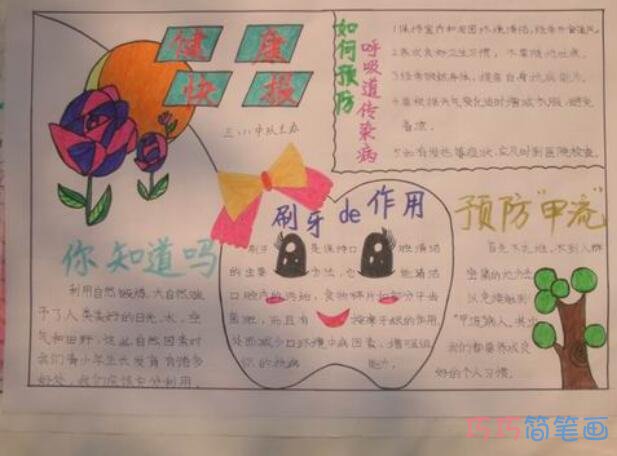 健康
快报
三.(1)中队主办
如何预防
呼吸道传染病
1.保持室内和周围环境清洁,经常开窗通风。
2.养成良好卫生习惯,不要随地吐痰。
3.经常锻炼身体,提高自身抗病能力。
4.要根据天气变化适时增减衣服,避免
着凉。
5.如有发热等症状,应及时到医院检查。
刷牙de作用
刷牙是保持口腔清洁
的主要方法,它能清洁
口腔内的
食物碎片和部分牙齿
菌斑,而且有按摩牙龈的作用,
从而减少口环境中病因素,增强组
织的抗病能力。
你知道吗
利用自然锻炼,大自然赐
予了人类美好的日光、水、空
气和田野,这些自然因素对
我们青少年生长发育有诸多
好处,我们应该充分利用。
预防"甲流"
首先不扎堆,不到人群
密集的地方去
以免接触到
"甲流"病人,其次
我们都要养成良
好的个人习惯。
巧巧简笔画